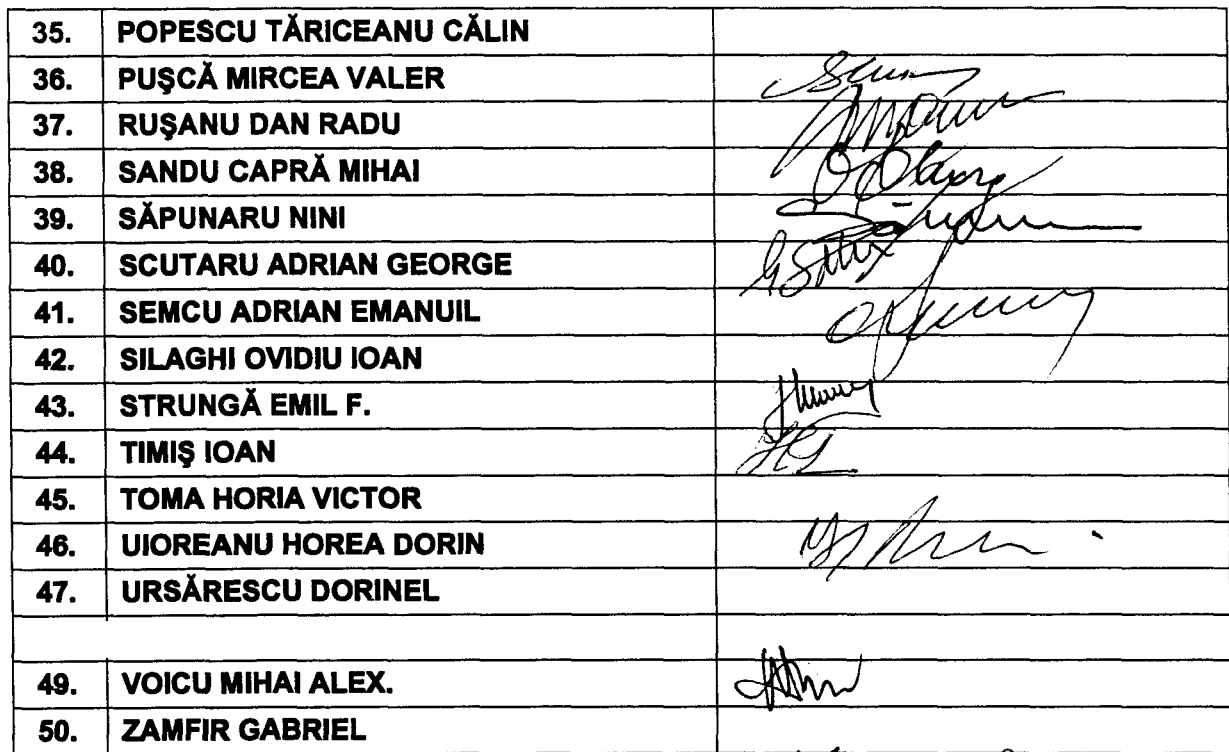 35. POPESCU TĂRICEANU CĂLIN
36. PUŞCĂ MIRCEA VALER
37. RUŞANU DAN RADU
38. SANDU CAPRĂ MIHAI
39. SĂPUNARU NINI
40. SCUTARU ADRIAN GEORGE
41. SEMCU ADRIAN EMANUIL
42. SILAGHI OVIDIU IOAN
43. STRUNGĂ EMIL F.
44. TIMIŞ IOAN
45. TOMA HORIA VICTOR
46. UIOREANU HOREA DORIN
47. URSĂRESCU DORINEL
49. VOICU MIHAI ALEX.
50. ZAMFIR GABRIEL